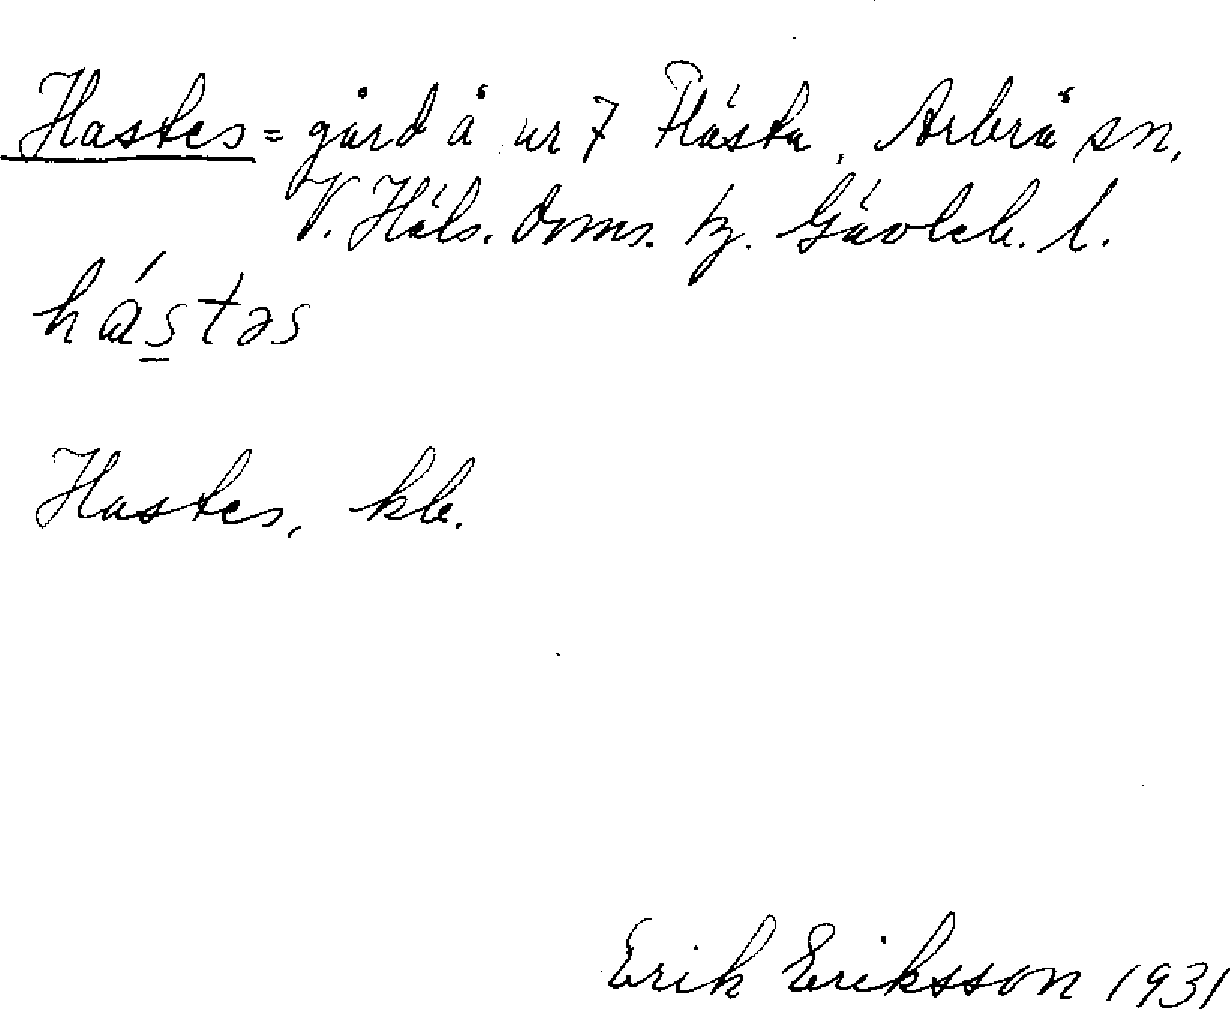 Hastes = gård å nr 7 Flästa, Arbrå sn,
V. Häls. doms. tg. Gävleb. l.
hástəs
Hastes, klb.
Erik Eriksson 1931